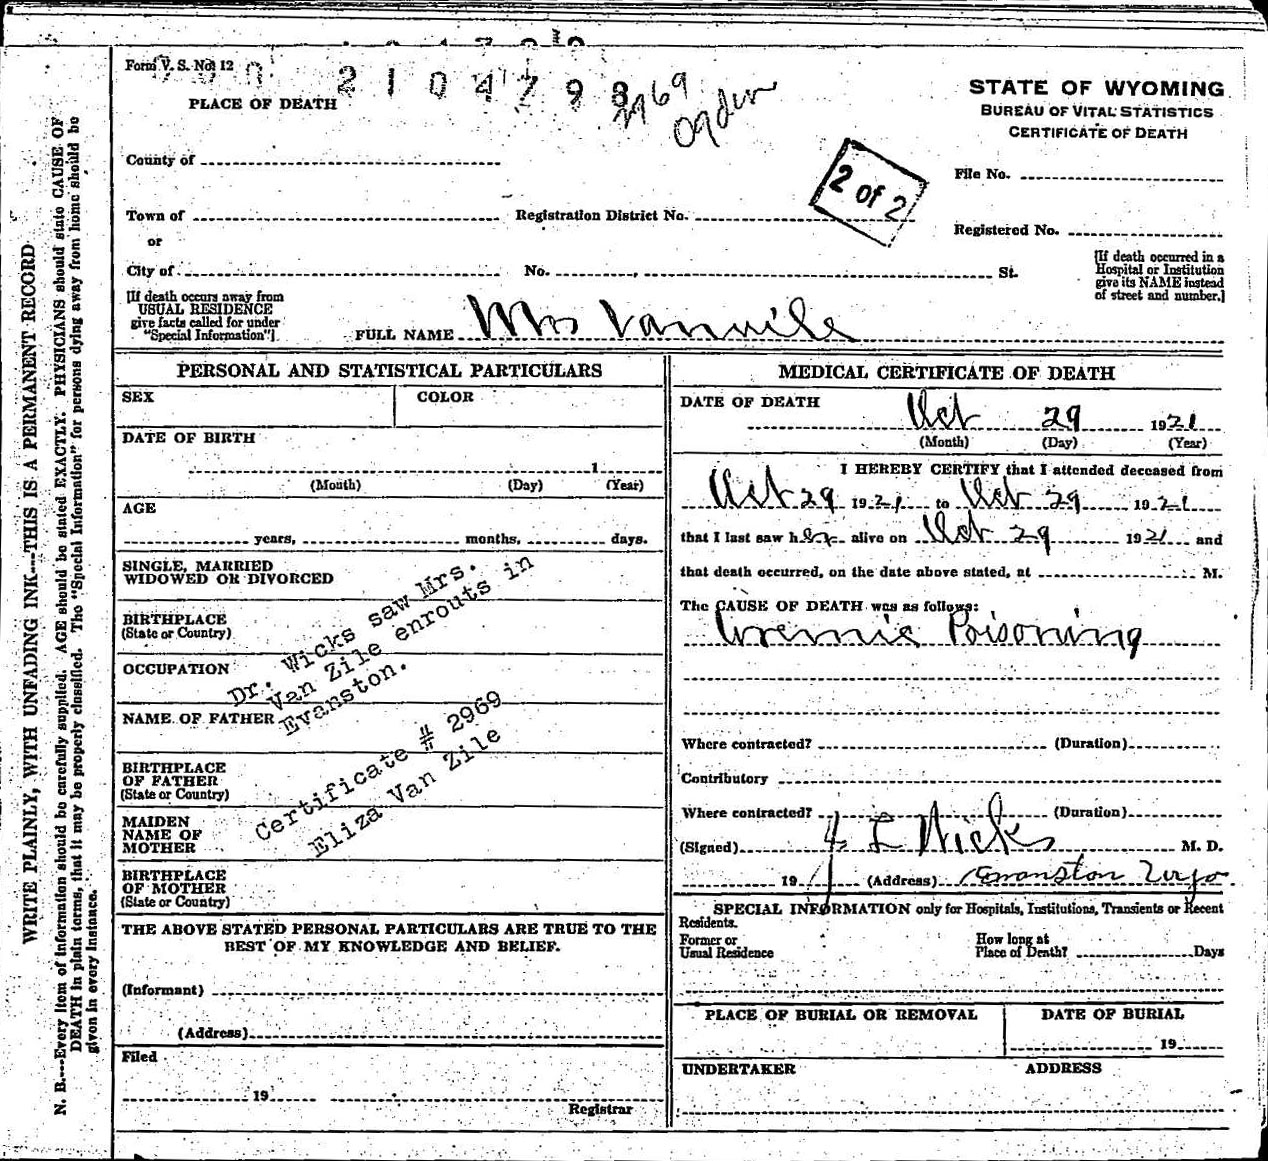 Form V. S. No. 12
2 1 0 4 7 9 8
2969
Ogden
PLACE OF DEATH
STATE OF WYOMING
BUREAU OF VITAL STATISTICS
CERTIFICATE OF DEATH
County of
File No.
2 of 2
Town of
Registration District No.
or
Registered No.
City of
No. , St.
[If death occurred in a
Hospital or Institution
give its NAME instead
of street and number.]
[If death occurs away from
USUAL RESIDENCE
give facts called for under
"Special Information"]
FULL NAME Mrs Vanzile
PERSONAL AND STATISTICAL PARTICULARS
SEX
COLOR
DATE OF BIRTH
1
(Month) (Day) (Year)
AGE
years, months, days.
SINGLE, MARRIED
WIDOWED OR DIVORCED
BIRTHPLACE
(State or Country)
OCCUPATION
NAME OF FATHER
BIRTHPLACE
OF FATHER
(State or Country)
MAIDEN
NAME OF
MOTHER
BIRTHPLACE
OF MOTHER
(State or Country)
Dr. Wicks saw Mrs.
Van Zile enrouts in
Evanston.
Certificate # 2969
Eliza Van Zile
THE ABOVE STATED PERSONAL PARTICULARS ARE TRUE TO THE
BEST OF MY KNOWLEDGE AND BELIEF.
(Informant)
(Address)
Filed
19
Registrar
MEDICAL CERTIFICATE OF DEATH
DATE OF DEATH
Oct 29 1921
(Month) (Day) (Year)
I HEREBY CERTIFY that I attended deceased from
Oct 29 1921 to Oct 29 1921
that I last saw her alive on Oct 29 1921 and
that death occurred, on the date above stated, at M.
The CAUSE OF DEATH was as follows:
Uremic Poisoning
Where contracted? (Duration)
Contributory
Where contracted? (Duration)
(Signed) L Wicks M. D.
19 (Address) Evanston Wyo.
SPECIAL INFORMATION only for Hospitals, Institutions, Transients or Recent
Residents.
Former or
Usual Residence
How long at
Place of Death? Days
PLACE OF BURIAL OR REMOVAL
DATE OF BURIAL
19
UNDERTAKER
ADDRESS
WRITE PLAINLY, WITH UNFADING INK---THIS IS A PERMANENT RECORD
N. B.---Every item of information should be carefully supplied. AGE should be stated EXACTLY. PHYSICIANS should state CAUSE OF
DEATH in plain terms, that it may be properly classified. The "Special Information" for persons dying away from home should be
given in every instance.